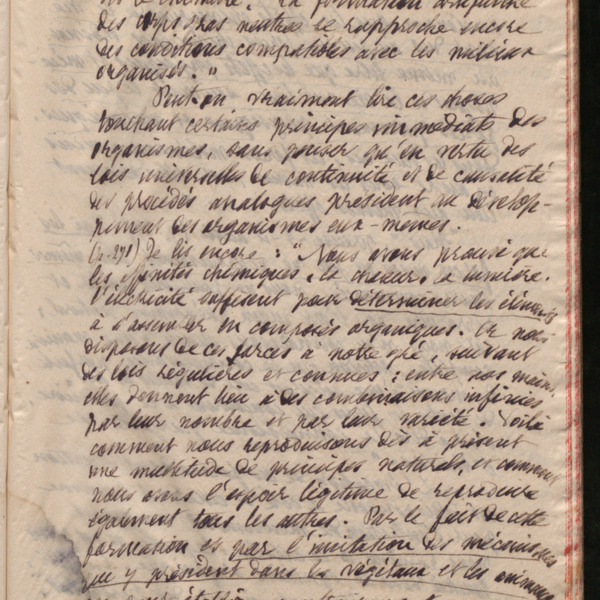 des corps gras neutres se rapproche encore
des conditions compatibles avec les milieux
organisés. "
Peut-on vraiment lire ces choses
touchant certains principes immédiats des
organismes, sans penser qu'en vertu des
lois universelles de continuité et de causalité
des procédés analogues président au dévelop-
pement des organismes eux-mêmes.
(p. 271) Je lis encore : " Nous avons prouvé que
les affinités chimiques, la chaleur, la lumière,
l'électricité suffisent pour déterminer les éléments
à s'assembler en composés organiques. Or nous
disposons de ces forces à notre gré, suivant
des lois régulières et connues : entre nos mains
elles donnent lieu à des combinaisons infinies
par leur nombre et par leur variété. Voilà
comment nous reproduisons dès à présent
une multitude de principes naturels, et comment
nous avons l'espoir légitime de reproduire
également tous les autres. Par le fait de cette
formation et par l'imitation des mécanismes
qui y président dans les végétaux et les animaux